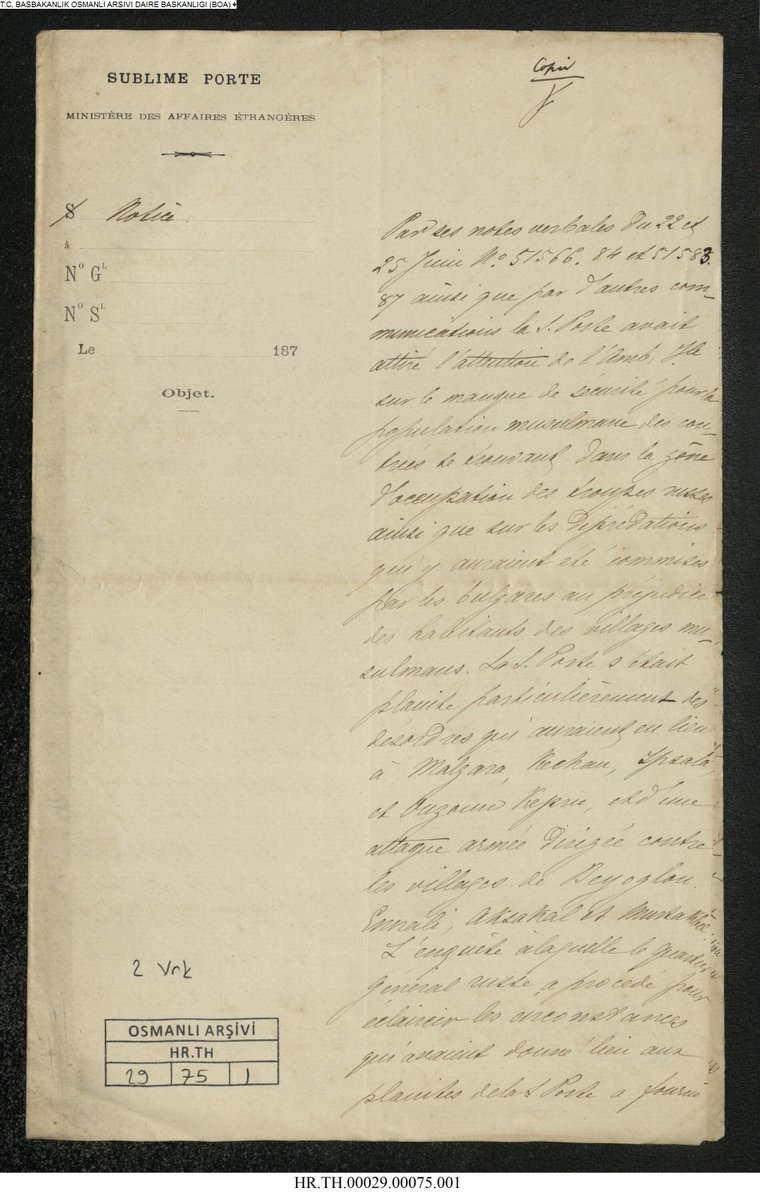 T.C. BASBAKANLIK OSMANLI ARSIVI DAIRE BASKANLIGI (BOA)
SUBLIME PORTE
MINISTÈRE DES AFFAIRES ÉTRANGÈRES
Copie
S Notice
à
Nº Gˡ
Nº Sˡ
Le 187
Objet.
Par ses notes verbales du 22 et
25 Juin Nº 51566. 84 et 51583.
87 ainsi que par d'autres com-
munications la S. Porte avait
attiré l'attention de l'Amb. Jle
sur le manque de sécurité pour la
population musulmane des con-
trées se trouvant dans la zône
d'occupation des troupes russes
ainsi que sur les déprédations
qui y auraient été commises
par les bulgares au préjudice
des habitants des villages mu-
sulmans. La S. Porte s'était
plainte particulièrement des
desordres qui auraient eu lieu
à Malgara, Kechan, Ipsala,
et Ouzoun Kepru, et d'une
attaque armée dirigée contre
les villages de Beyoglou.
Enneli, Aksakal et
L'enquête à laquelle le quartier
général russe a procédé pour
éclaircir les circonstances
qui avaient donné lieu aux
plaintes de la S Porte a fourni
2 Vrk
OSMANLI ARŞİVİ
HR.TH
29 75 1
HR.TH.00029.00075.001